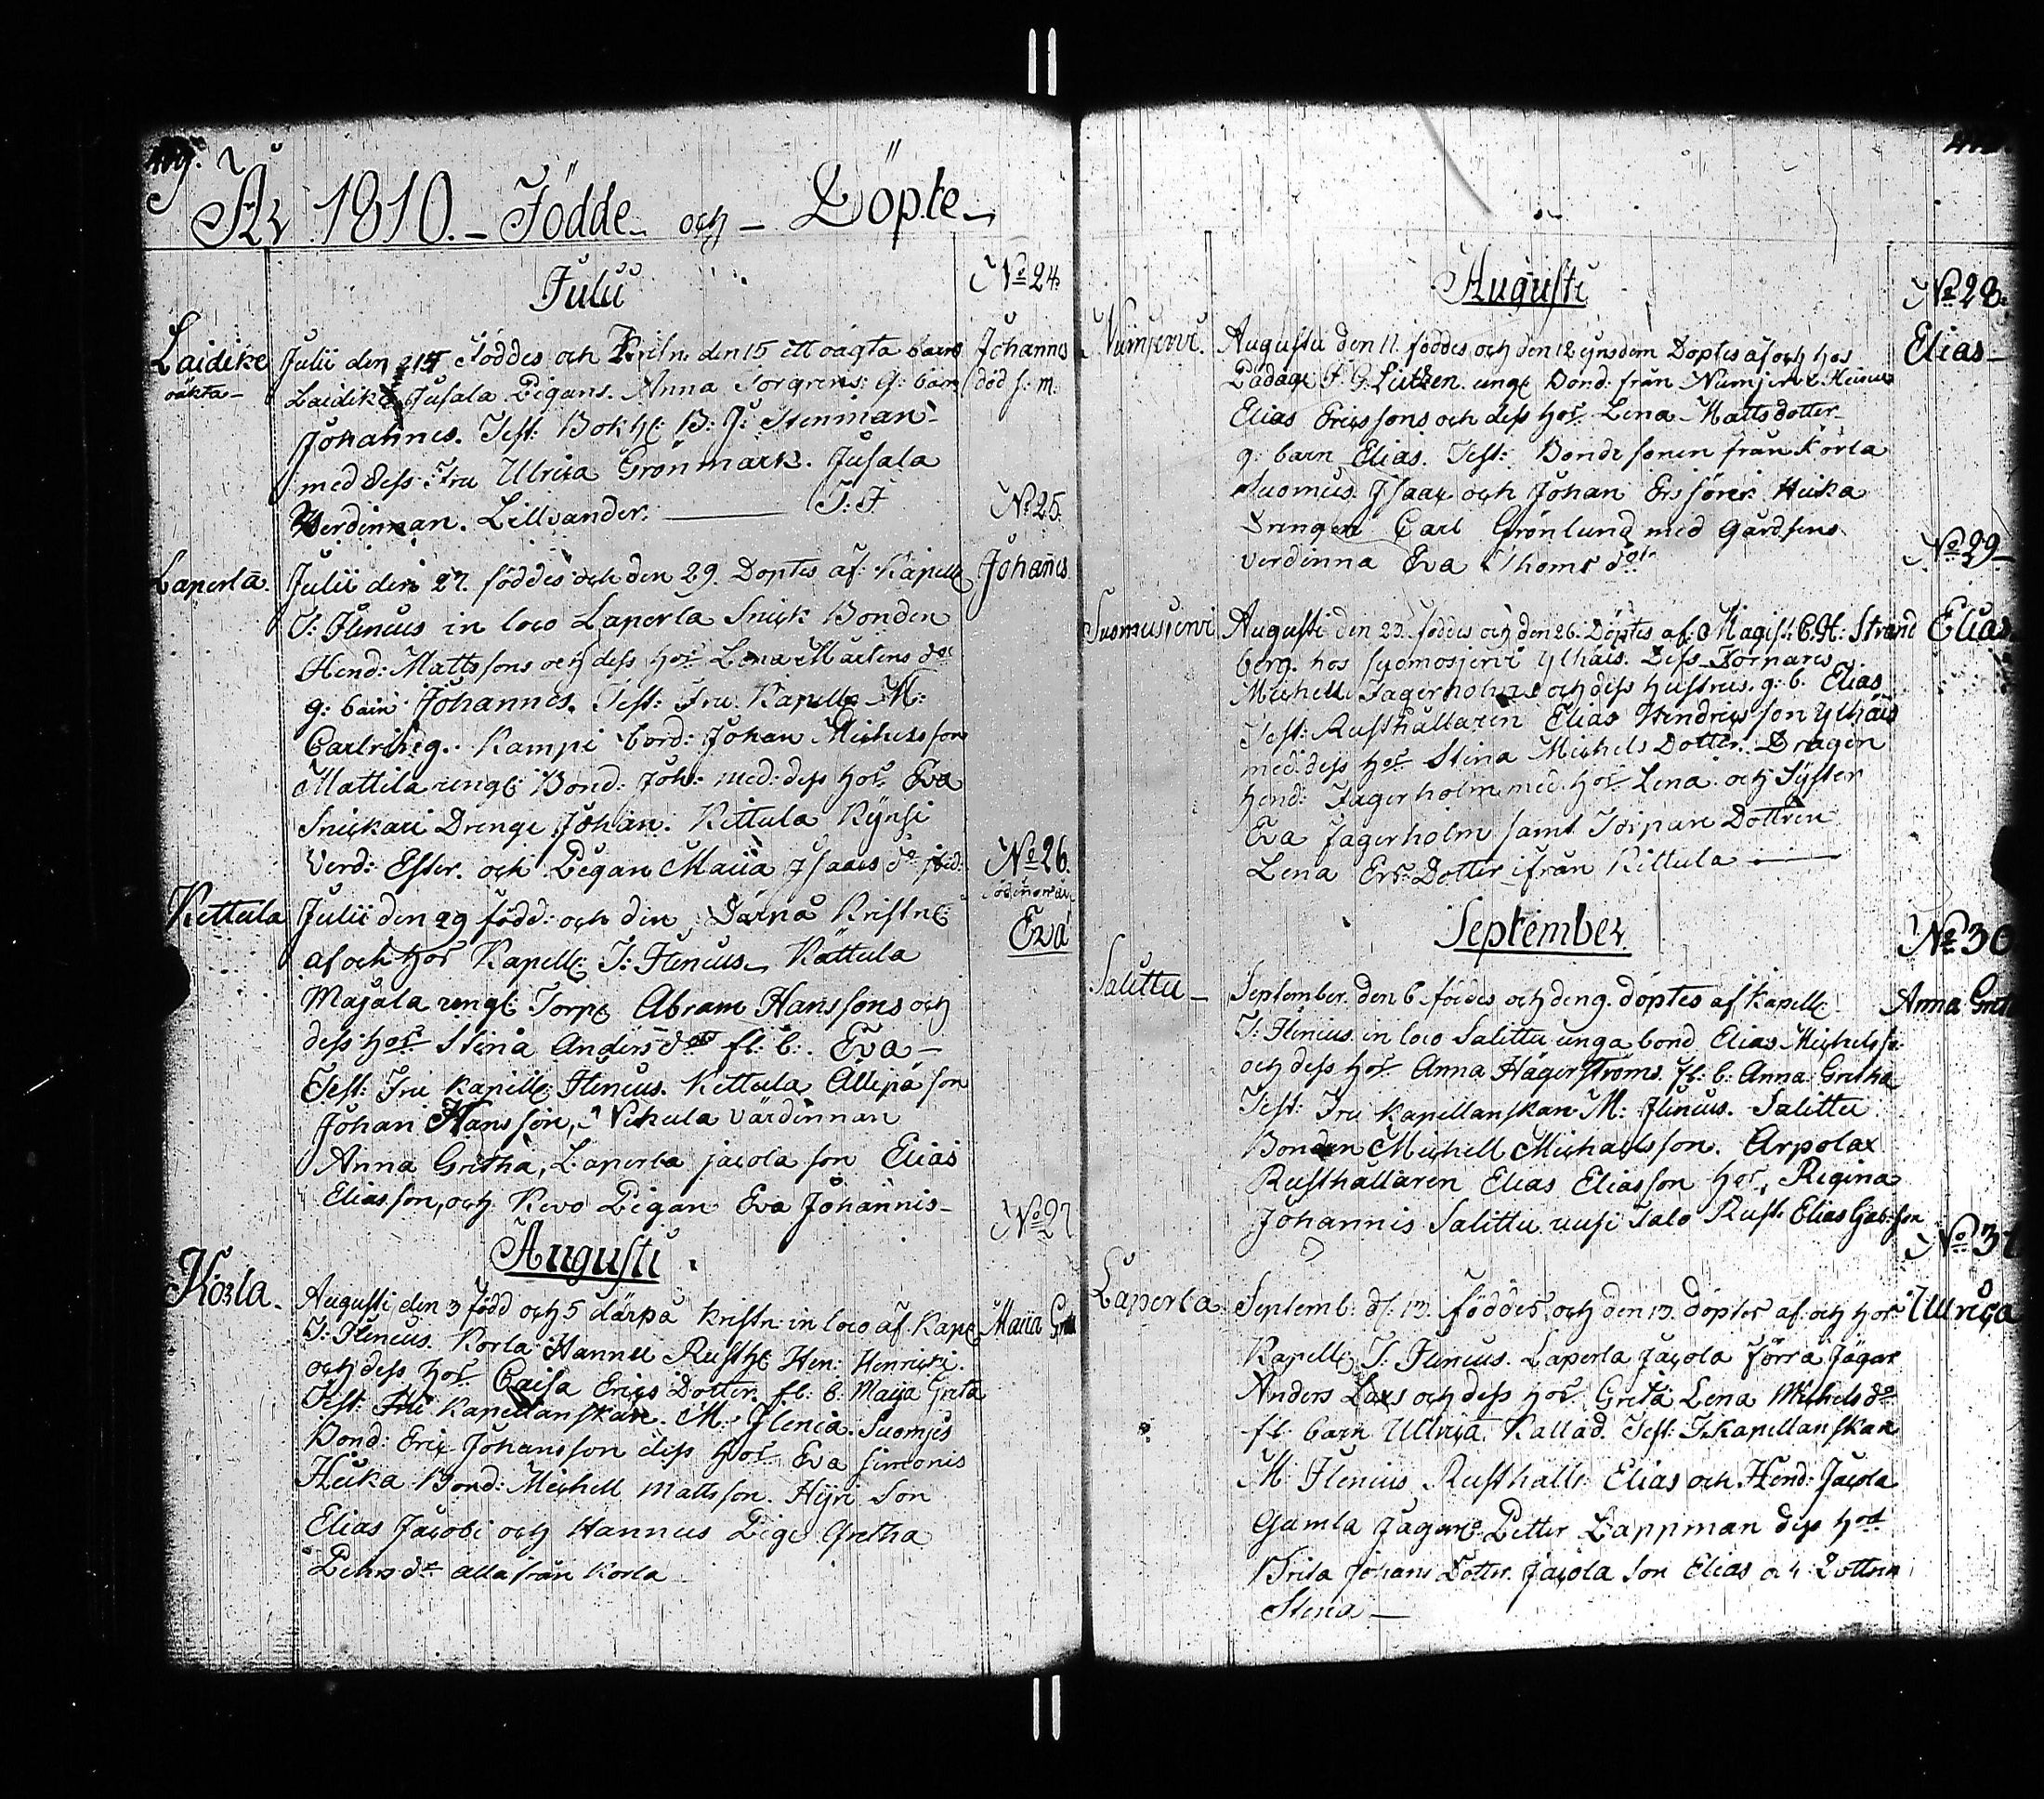 År 1810. – Födde och – Döpte –
Julii
No 24.
Laidike
oäkta –
Johannes
död s: m.
Julii den 14 Föddes och Kristn. den 15 ett oägta barn
Laidike Jusala Pigans. Anna Torgrens: g: barn
Johannes. Test: Bokh: B: J: Stenman
med dess Fru Ulrica Grönmark. Jusala
Werdinnan. Lillvander. — T: F
No 25.
Laperla.
Johanes
Julii den 27. föddes och den 29. Döptes af Kapell
T: Flencus in loco Laperla Snick Bonden
Hend: Mattssons och dess hor Lena Mårtens dor
g: barn Johannes. Test: Fru Kapell M:
Carlriheg. Kampi bond: Johan Michelsson
Mattila ungl: Bond: Joh: med: dess hor Eva
Snickari Drenge Johan. Kettula Kÿnsi
Verd: Esser. och Pigan Maiia Isaacs dr ibid:
No 26.
Kettula
Eva
Julii den 29 född: och den Darnå Kristne:
af och hos Kapell: T: Flencus – Kättula
Majala ungl: Torp: Abram Hanssons och
dess hor Stina Anders dor fl: b: Eva –
Test: Fru Kapell: Flencus. Kettula Allipä son
Johan Hansson, Nikula värdinnan
Anna Gretha, Laperla jacola son Elias
Eliasson, och Kevo Pigan Eva Johannis –
No 27
Augusti
Korla –
Maiia Greta
Augusti den 3 född och 5 därpå kristn: in loco af Kapel
T: Flencus. Korla Hannu Rusth: Hen: Henrici.
och dess hor Caisa Erics Dotter fl: b: Maija Greta
Test: Fru Kapellanskan. M: Flencia. Suomjes
Bond: Eric Johansson dess hor Eva simonis
Heika Bond: Michell Mattsson. Hÿri Son
Elias Jacobi och Hannus Pige Gretha
Pehrs dr alla från Korla –
Augusti
No 28.
Numjervi.
Elias –
Augusti den 11. föddes och den 12 ejusdem Döptes af och hos
Pädage F. G. Lutken. ungl Bond: från Numjervi Heina
Elias Ericssons och dess hor Lena Mattsdotter
g: barn Elias. Test: Bonde sonen från Korla
Suomus. Isaac och Johan Ers söner Heika
Drengen Carl Grönlund med gårdsens
verdinna Eva Thoms dor
No 29 –
Suomusjervi
Elias
Augusti den 23. föddes och den 26. Döptes af: Magist: C. H: Strand
berg. hos suomosjervi ylhäis. Dess Torpares
Michell Jagerholms och dess hustrus. g: b. Elias
Test: Rusthållaren Elias Hendricsson ylhäis
med dess hor Stina Michels Dotter. Drägen
hend: Jagerholm med hor Lena och Syster
Eva Jagerholm samt Torpare Dottren
Lena Ers: Dotter ifrån Kettula —
September
No 30
Salittu –
Anna Greth
September. den 6 föddes och den 9. döptes af Kapell:
T: Flencus in loco Salittu unga bond Elias Michelss:
och dess hor Anna Hägerströms fl: b: Anna Gretha
Test: Fru Kapellanskan M: Flencus. Salittu
Bonden Michell Michaelsson. Arpolax
Rusthållaren Elias Eliasson hor, Regina
Johannis Salittu uusi Talo Rust: Elias Gabsson
No 31
Laperla
Ulrica
Septemb: d: 13. Föddes, och den 13. döptes af och hos
Kapell: T: Flencus. Laperla Jacola Förra Jägar
Anders Laxs och dess hor Greta Lena Michels dr
fl: barn Ullrica Kallad. Test: F. Kapellanskan
M: Flencus Rusthåll: Elias och Hend: Jacola
Gamla Jagare Petter Lappman dess hor
Brita Johans Dotter. Jacola Son Elias och Dottren
Stina —